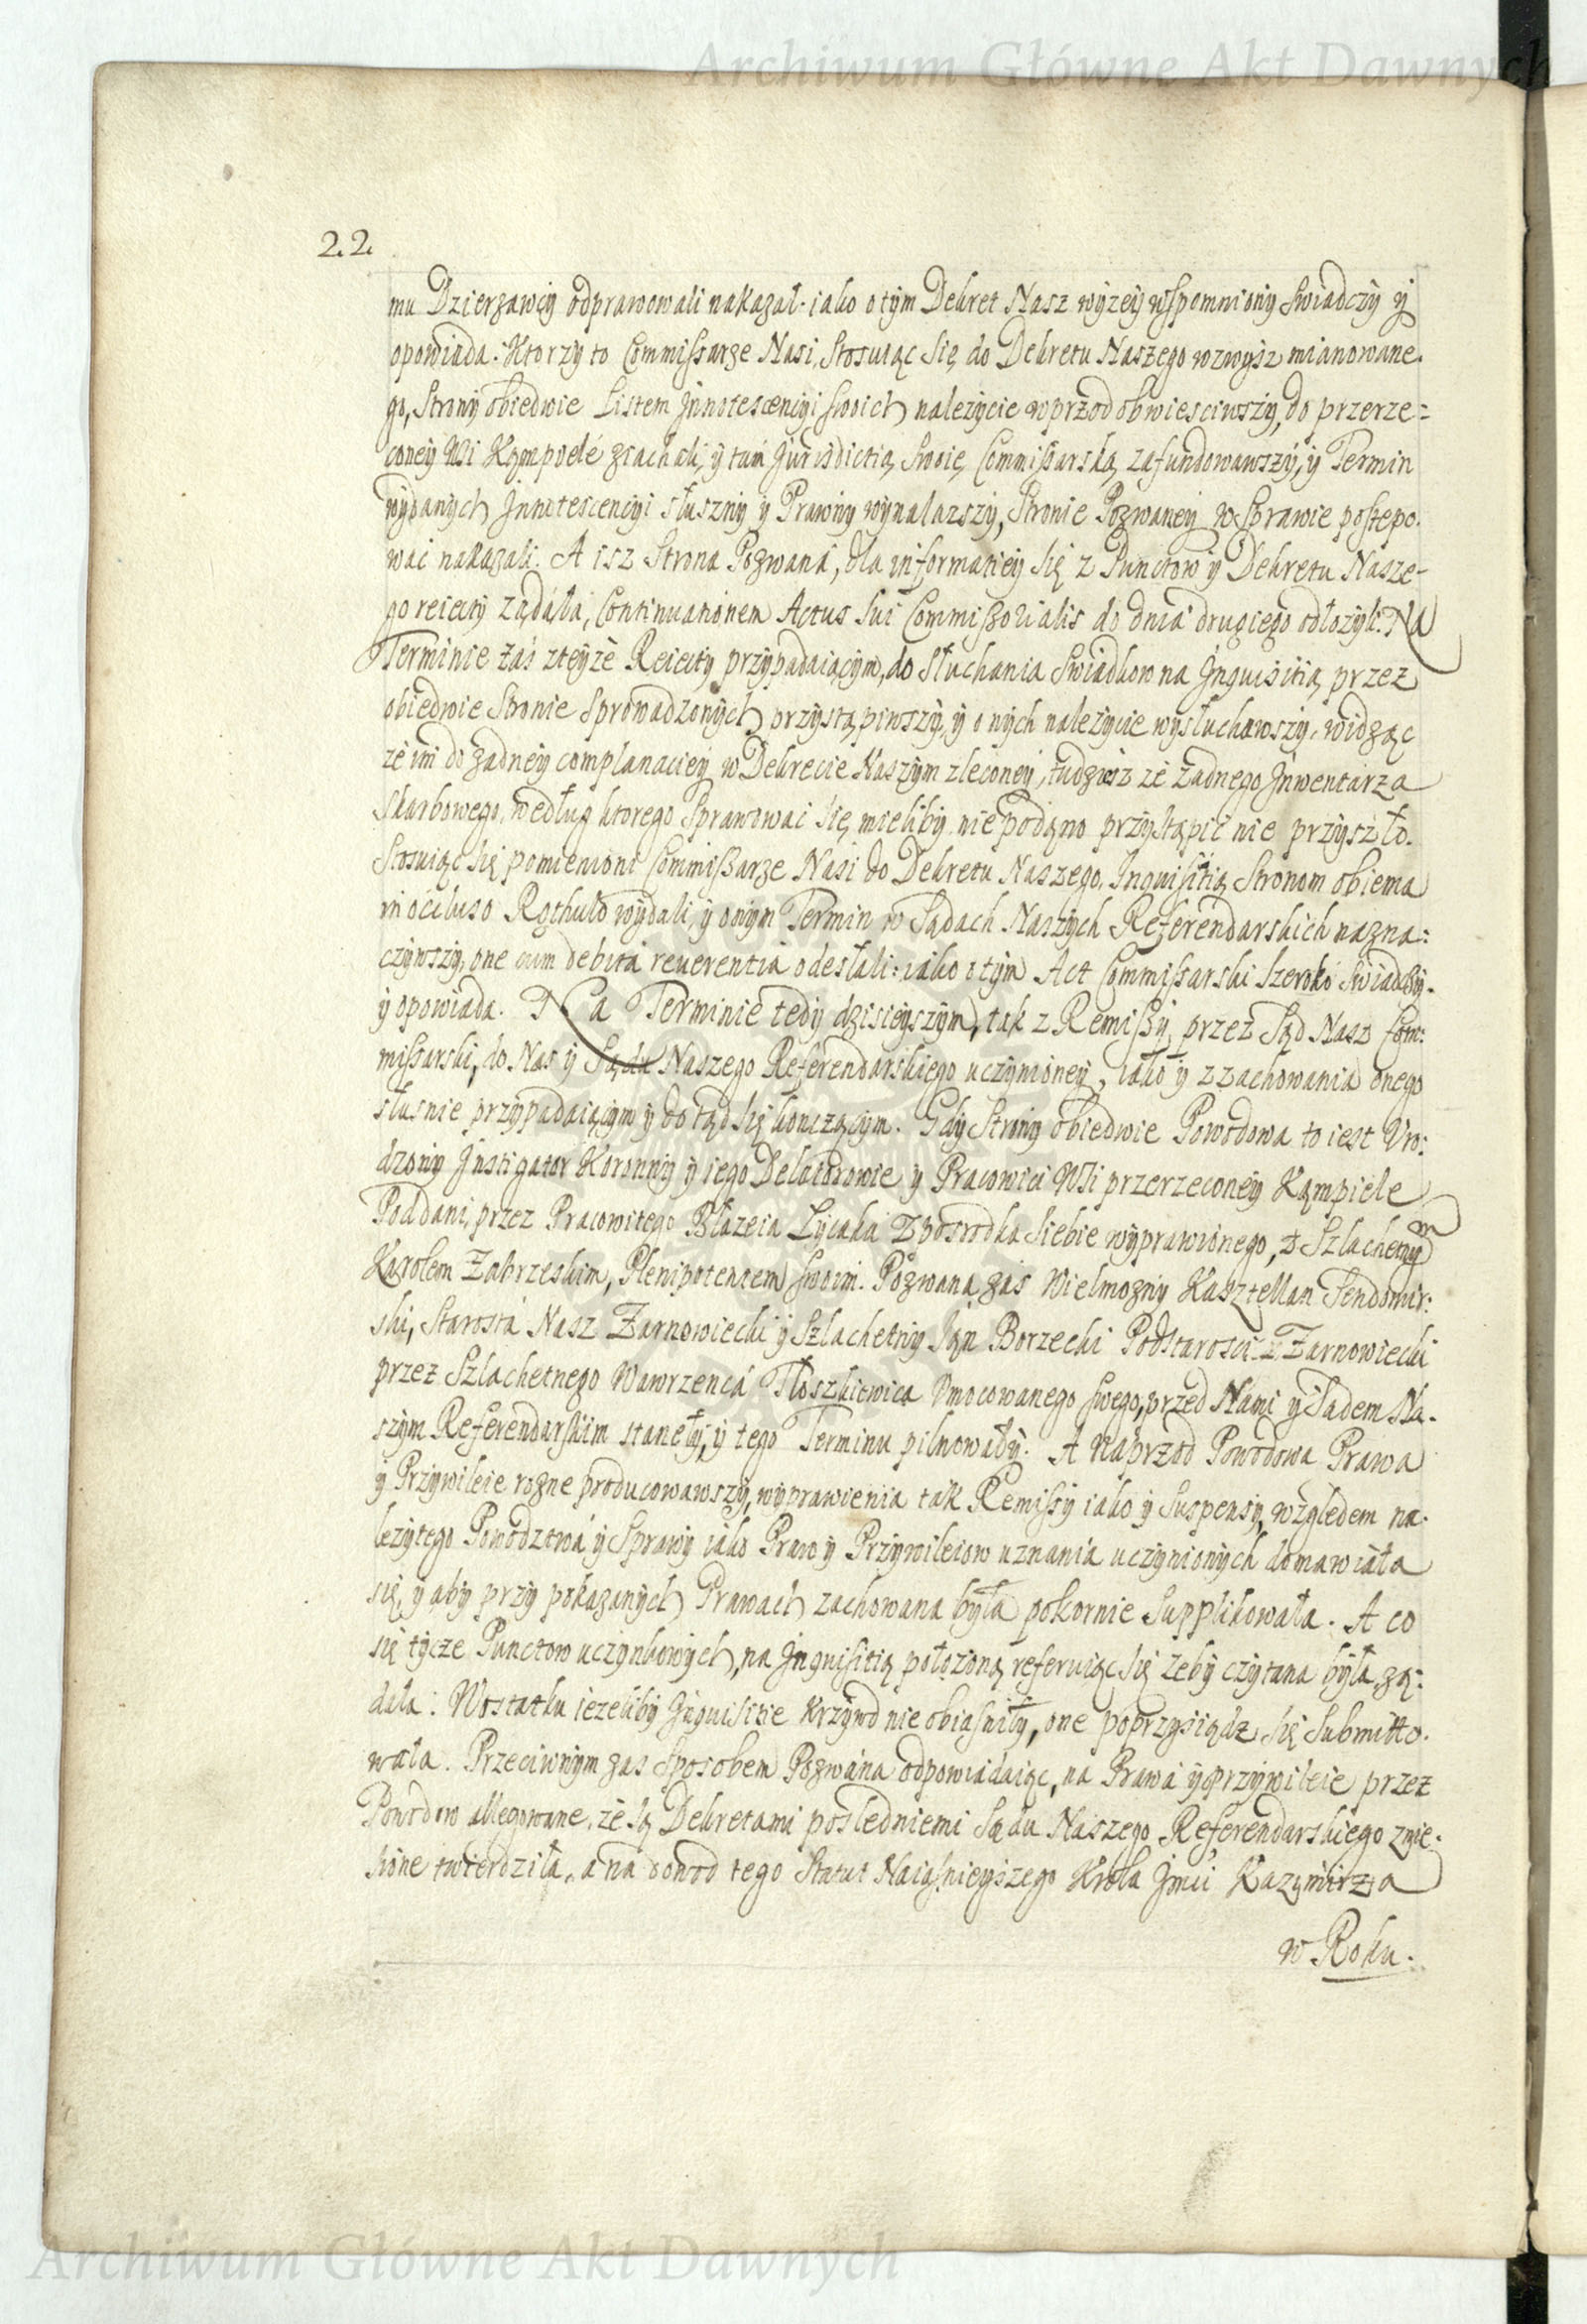 Archiwum Główne Akt Dawnych
2.2.
mu Dzierzawcy odprawowali nakazał. iako o tym Dekret Nasz wyzey wspomniony swiadczy y
opowiada. Ktorzy to Commissarze Nasi, Stosuiąc się do Dekretu Naszego wzwysz mianowane-
go, Strony obiedwie Listem Innotescenciyi swoich nalezycie wprzod obwiesciwszy, do przerze=
coney Wsi Kąmpiele ziachali, y tam Jurisdictią Swoię Commissarską zafundowawszy, y Termin
wydanych Innotescencyi słuszny y Prawny wynalazszy, Stronie Pozwaney w Sprawie postepo-
wać nakazali. A isz Strona Pozwana, dla informatiey się z Punctow y Dekretu Nasze-
go reiecty ządała, Continuationem Actus sui Commissorialis do dnia drugiego odłozyli. Na
Terminie zaś zteyże Reiecty przypadaiącym, do Słuchania Swiadkow na Inquisitią przez
obiedwie Stronie Sprowadzonych przystąpiwszy, y onych nalezycie wysłuchawszy, widząc
ze im do zadney complanaciey w Dekrecie Naszym zleconey, tudziesz ze zadnego Inwentarza
Skarbowego, według ktorego Sprawowac się mieliby nie podano przystąpić nie przyszło.
Stosuiąc się pomienioni Commissarze Nasi do Dekretu Naszego, Inquisitią Stronom obiema
in ocluso Rothulo wydali, y onym Termin w Sądach Naszych Referendarskich nazna=
czywszy, one cum debita reuerentia odesłali: iako o tym Act Commissarski Szeroko Swiadczy.
y opowiada. Na Terminie tedy dzisieyszym, tak z Remissy przez Sąd Nasz Com=
missarski, do Nas y Sądu Naszego Referendarskiego uczynioney, iako y z zachowania onego
słusnie przypadaiącym y do tąd się kończącym. Gdy Strony obiedwie Powodowa to iest Vro=
dzony Instigator Koronny y iego Delatorowie y Pracowici Wsi przerzeconey Kąmpiele
Poddani, przez Pracowitego Błazeia Lycaka z posrodka siebie wyprawionego, z Szlachetnym
Karolem Zabrzeskim, Plenipotentem swoim. Pozwana zas Wielmozny Kasztellan Sendomir=
ski, Starosta Nasz Zarnowiecki y Szlachetny Ian Borzecki Podstarosci Zarnowiecki
przez Szlachetnego Wawrzenca Tłoszkiewica Vmocowanego swego, przed Nami y Sadem Na-
szym Referendarskim stanęły, y tego Terminu pilnowały. A naprzod Powodowa Prawa
y Przywileie rozne producowawszy, wyprawienia tak Remissy iako y Suspensy, względem na-
lezytego Powodztwa y Sprawy iako Praw y Przywileiow uznania uczynionych domawiała
się, y aby przy pokazanych Prawach zachowana była pokornie Supplikowała. A co
się tycze Punctow uczynkowych, na Inquisitią połozoną referuiąc się zeby czytana była, zą=
dała: Wostatku iezeliby Inquisitie Krzywd nie obiasniły, one poprzysiądz się Submitto-
wała. Przeciwnym zas Sposobem Pozwana odpowiadaiąc, na Prawa y przywileie przez
Powodow allegowane, ze są Dekretami posledniemi Sądu Naszego Referendarskiego znie-
sione twierdziła, a na dowod tego Statut Naiaśnieyszego Krola Jmći Kazimirza
w Roku.
Archiwum Główne Akt Dawnych